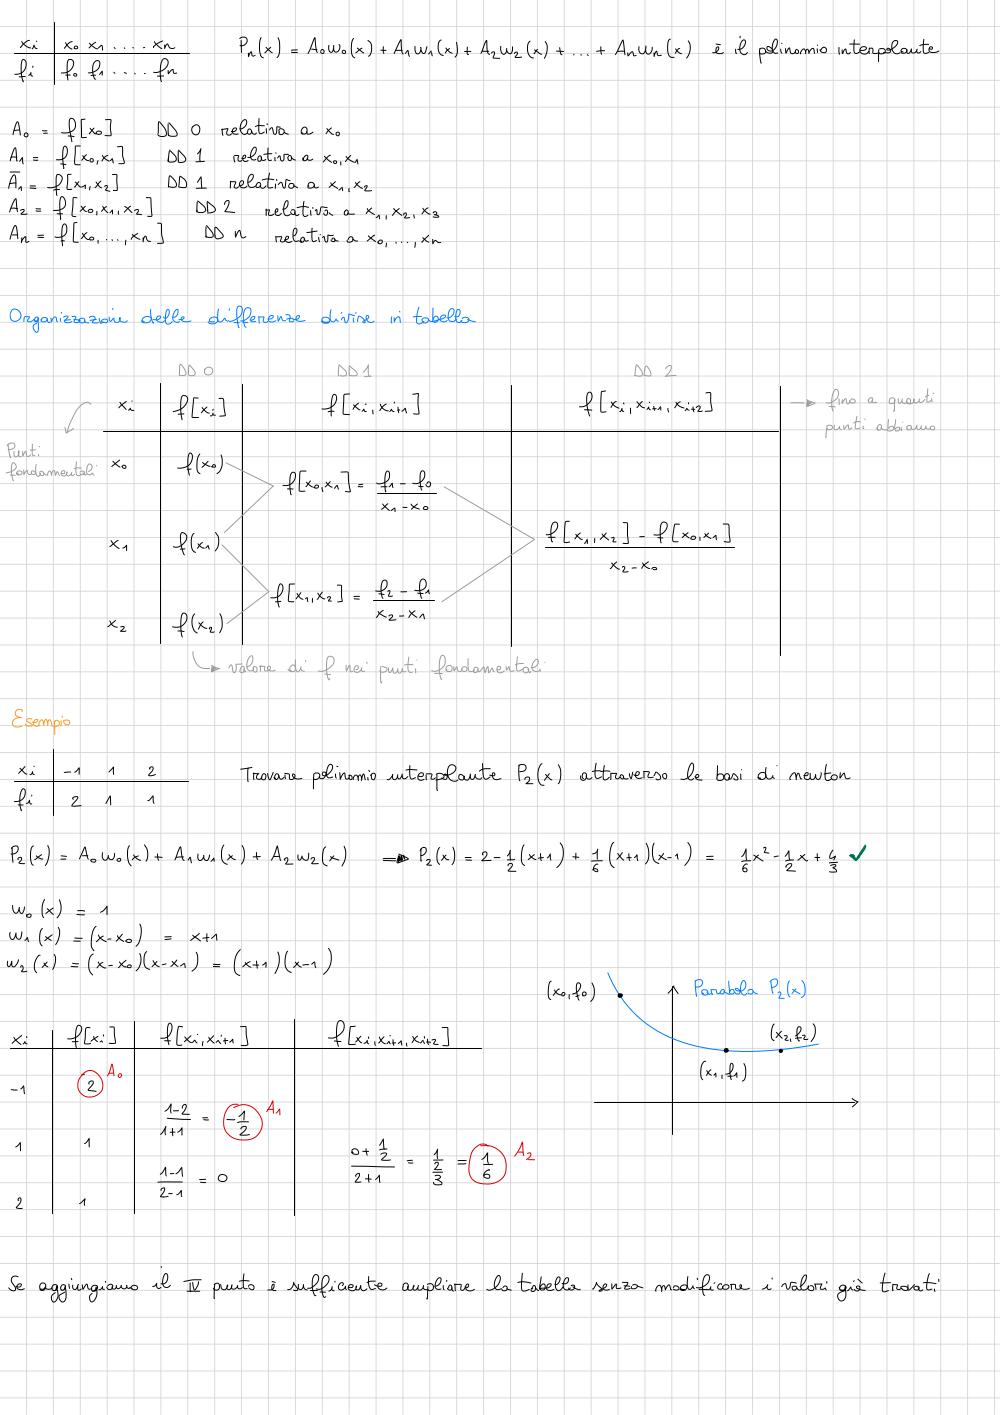 xi | x₀ x₁ .... xn
fi | f₀ f₁ .... fn
Pn(x) = A₀w₀(x) + A₁w₁(x) + A₂w₂(x) + ... + Anwn(x) è il polinomio interpolante
A₀ = f[x₀] DD 0 relativa a x₀
A₁ = f[x₀,x₁] DD 1 relativa a x₀,x₁
Ā₁ = f[x₁,x₂] DD 1 relativa a x₁,x₂
A₂ = f[x₀,x₁,x₂] DD 2 relativa a x₁,x₂,x₃
An = f[x₀,...,xn] DD n relativa a x₀,...,xn
Organizzazione delle differenze divise in tabella
DD 0 DD 1 DD 2
xi f[xi] f[xi,xi+1] f[xi,xi+1,xi+2]
→ fino a quanti
punti abbiamo
Punti
fondamentali
x₀ f(x₀)
f[x₀,x₁] = (f₁ - f₀)/(x₁ - x₀)
x₁ f(x₁)
(f[x₁,x₂] - f[x₀,x₁])/(x₂ - x₀)
f[x₁,x₂] = (f₂ - f₁)/(x₂ - x₁)
x₂ f(x₂)
valore di f nei punti fondamentali
Esempio
xi | -1 1 2
fi | 2 1 1
Trovare polinomio interpolante P₂(x) attraverso le basi di newton
P₂(x) = A₀w₀(x) + A₁w₁(x) + A₂w₂(x) ⇒ P₂(x) = 2 - 1/2(x+1) + 1/6(x+1)(x-1) = 1/6x² - 1/2x + 4/3 ✓
w₀(x) = 1
w₁(x) = (x-x₀) = x+1
w₂(x) = (x-x₀)(x-x₁) = (x+1)(x-1)
(x₀,f₀)
Parabola P₂(x)
(x₂,f₂)
(x₁,f₁)
xi f[xi] f[xi,xi+1] f[xi,xi+1,xi+2]
-1 2 A₀
(1-2)/(1+1) = -1/2 A₁
1 1
(0+1/2)/(2+1) = (1/2)/3 = 1/6 A₂
(1-1)/(2-1) = 0
2 1
Se aggiungiamo il IV punto è sufficiente ampliare la tabella senza modificare i valori già trovati